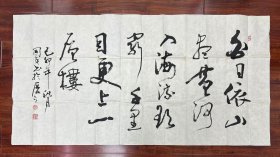 白日依山
尽黄河
入海流欲
穷千里
目更上一
层楼
己卯年秋月